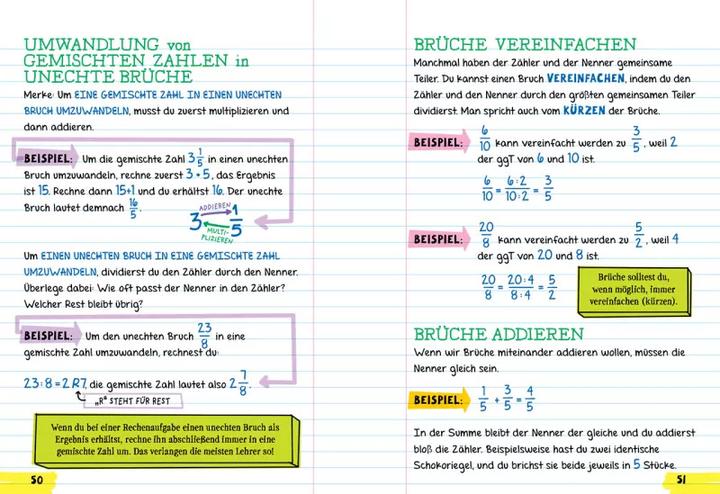 UMWANDLUNG von
GEMISCHTEN ZAHLEN in
UNECHTE BRÜCHE
Merke: Um EINE GEMISCHTE ZAHL IN EINEN UNECHTEN
BRUCH UMZUWANDELN, musst du zuerst multiplizieren und
dann addieren.
BEISPIEL: Um die gemischte Zahl 3 1/5 in einen unechten
Bruch umzuwandeln, rechne zuerst 3 • 5, das Ergebnis
ist 15. Rechne dann 15+1 und du erhältst 16. Der unechte
Bruch lautet demnach 16/5.
ADDIEREN
3 1/5
MULTI-
PLIZIEREN
Um EINEN UNECHTEN BRUCH IN EINE GEMISCHTE ZAHL
UMZUWANDELN, dividierst du den Zähler durch den Nenner.
Überlege dabei: Wie oft passt der Nenner in den Zähler?
Welcher Rest bleibt übrig?
BEISPIEL: Um den unechten Bruch 23/8 in eine
gemischte Zahl umzuwandeln, rechnest du:
23:8=2 R7, die gemischte Zahl lautet also 2 7/8.
„R“ STEHT FÜR REST
Wenn du bei einer Rechenaufgabe einen unechten Bruch als
Ergebnis erhältst, rechne ihn abschließend immer in eine
gemischte Zahl um. Das verlangen die meisten Lehrer so!
50
BRÜCHE VEREINFACHEN
Manchmal haben der Zähler und der Nenner gemeinsame
Teiler. Du kannst einen Bruch VEREINFACHEN, indem du den
Zähler und den Nenner durch den größten gemeinsamen Teiler
dividierst. Man spricht auch vom KÜRZEN der Brüche.
BEISPIEL: 6/10 kann vereinfacht werden zu 3/5, weil 2
der ggT von 6 und 10 ist.
6/10 = 6:2/10:2 = 3/5
BEISPIEL: 20/8 kann vereinfacht werden zu 5/2, weil 4
der ggT von 20 und 8 ist.
20/8 = 20:4/8:4 = 5/2
Brüche solltest du,
wenn möglich, immer
vereinfachen (kürzen).
BRÜCHE ADDIEREN
Wenn wir Brüche miteinander addieren wollen, müssen die
Nenner gleich sein.
BEISPIEL: 1/5 + 3/5 = 4/5
In der Summe bleibt der Nenner der gleiche und du addierst
bloß die Zähler. Beispielsweise hast du zwei identische
Schokoriegel, und du brichst sie beide jeweils in 5 Stücke.
51